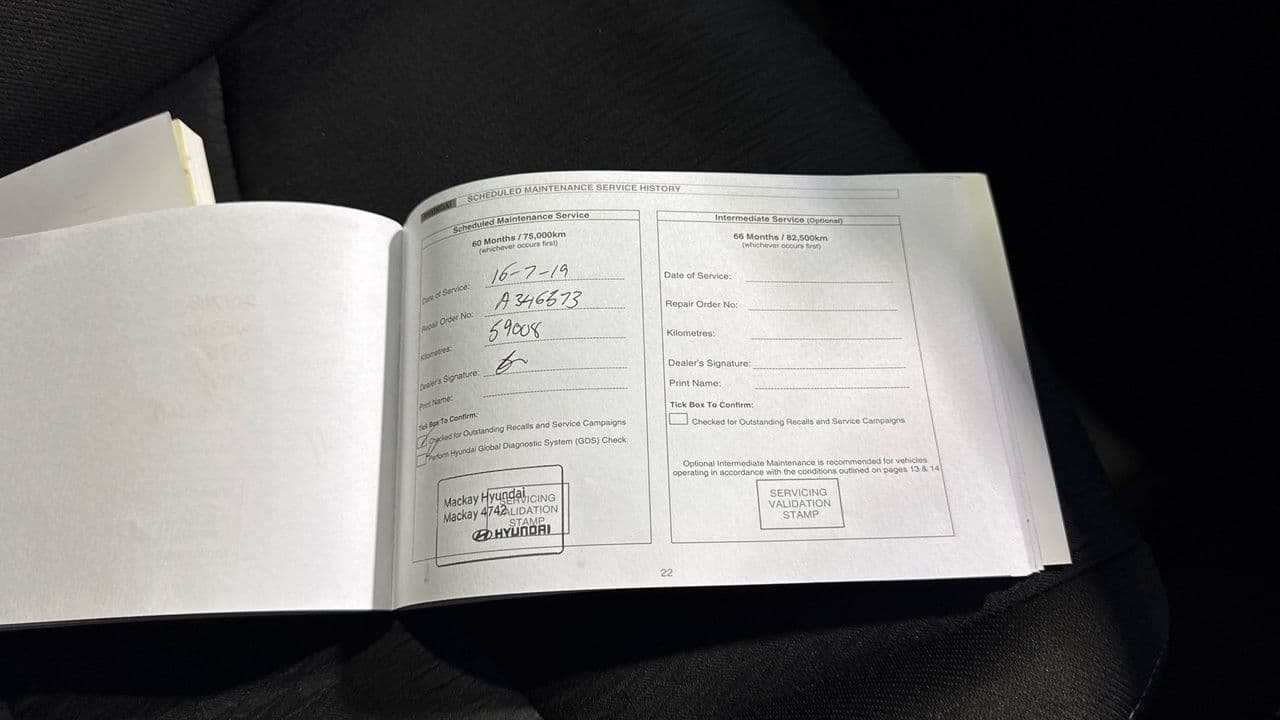 HYUNDAI SCHEDULED MAINTENANCE SERVICE HISTORY
Scheduled Maintenance Service
60 Months / 75,000km
(whichever occurs first)
Date of Service: 16-7-19
Repair Order No:
Kilometres: 59008
Dealer's Signature:
Print Name:
Tick Box To Confirm:
Checked for Outstanding Recalls and Service Campaigns
Perform Hyundai Global Diagnostic System (GDS) Check
Mackay Hyundai
Mackay 4742
HYUNDAI
SERVICING
VALIDATION
STAMP
Intermediate Service (Optional)
66 Months / 82,500km
(whichever occurs first)
Date of Service:
Repair Order No:
Kilometres:
Dealer's Signature:
Print Name:
Tick Box To Confirm:
Checked for Outstanding Recalls and Service Campaigns
Optional Intermediate Maintenance is recommended for vehicles
operating in accordance with the conditions outlined on pages 13 & 14
SERVICING
VALIDATION
STAMP
22